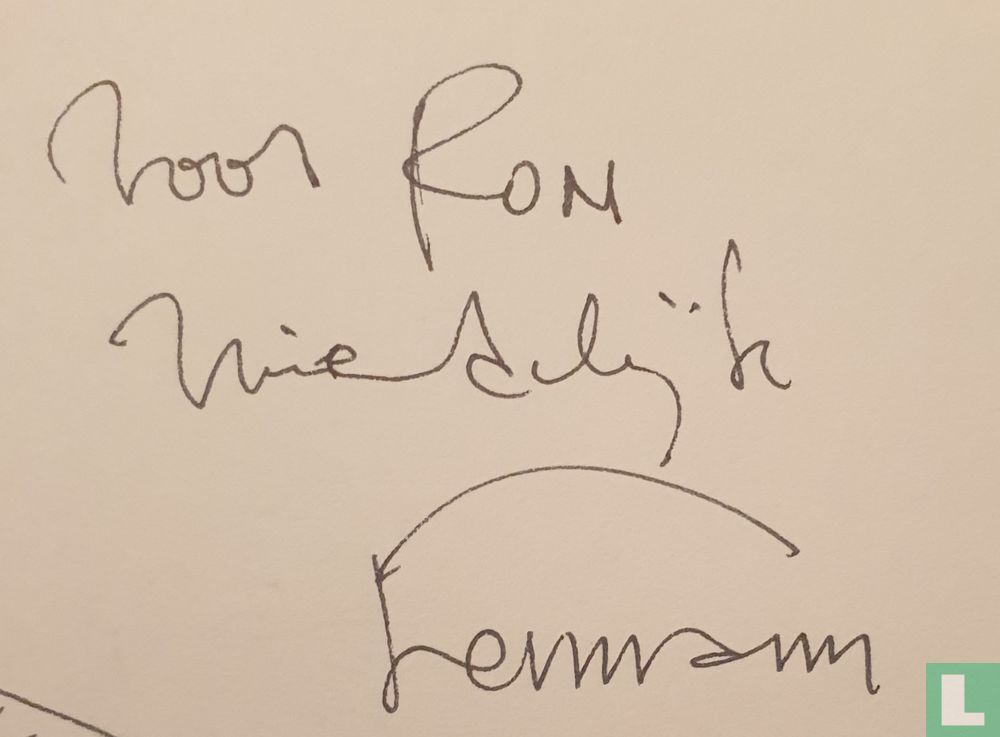 voor Ron
vriendelijk
Hermann
L